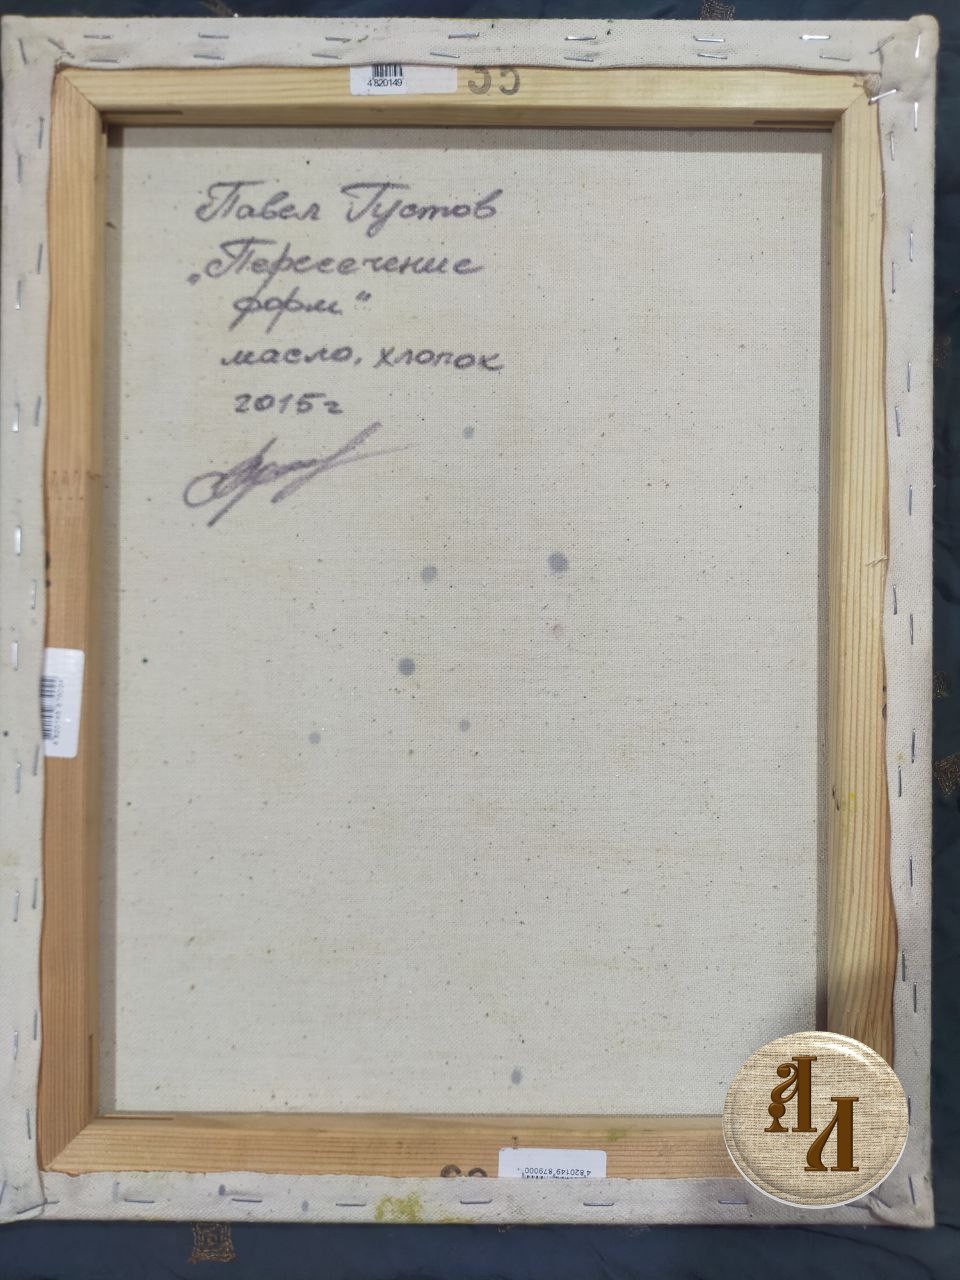 4 820149
35
Павел Густов
„Пересечение
форм"
масло, хлопок
2015г
4 820149 879000
АЛ